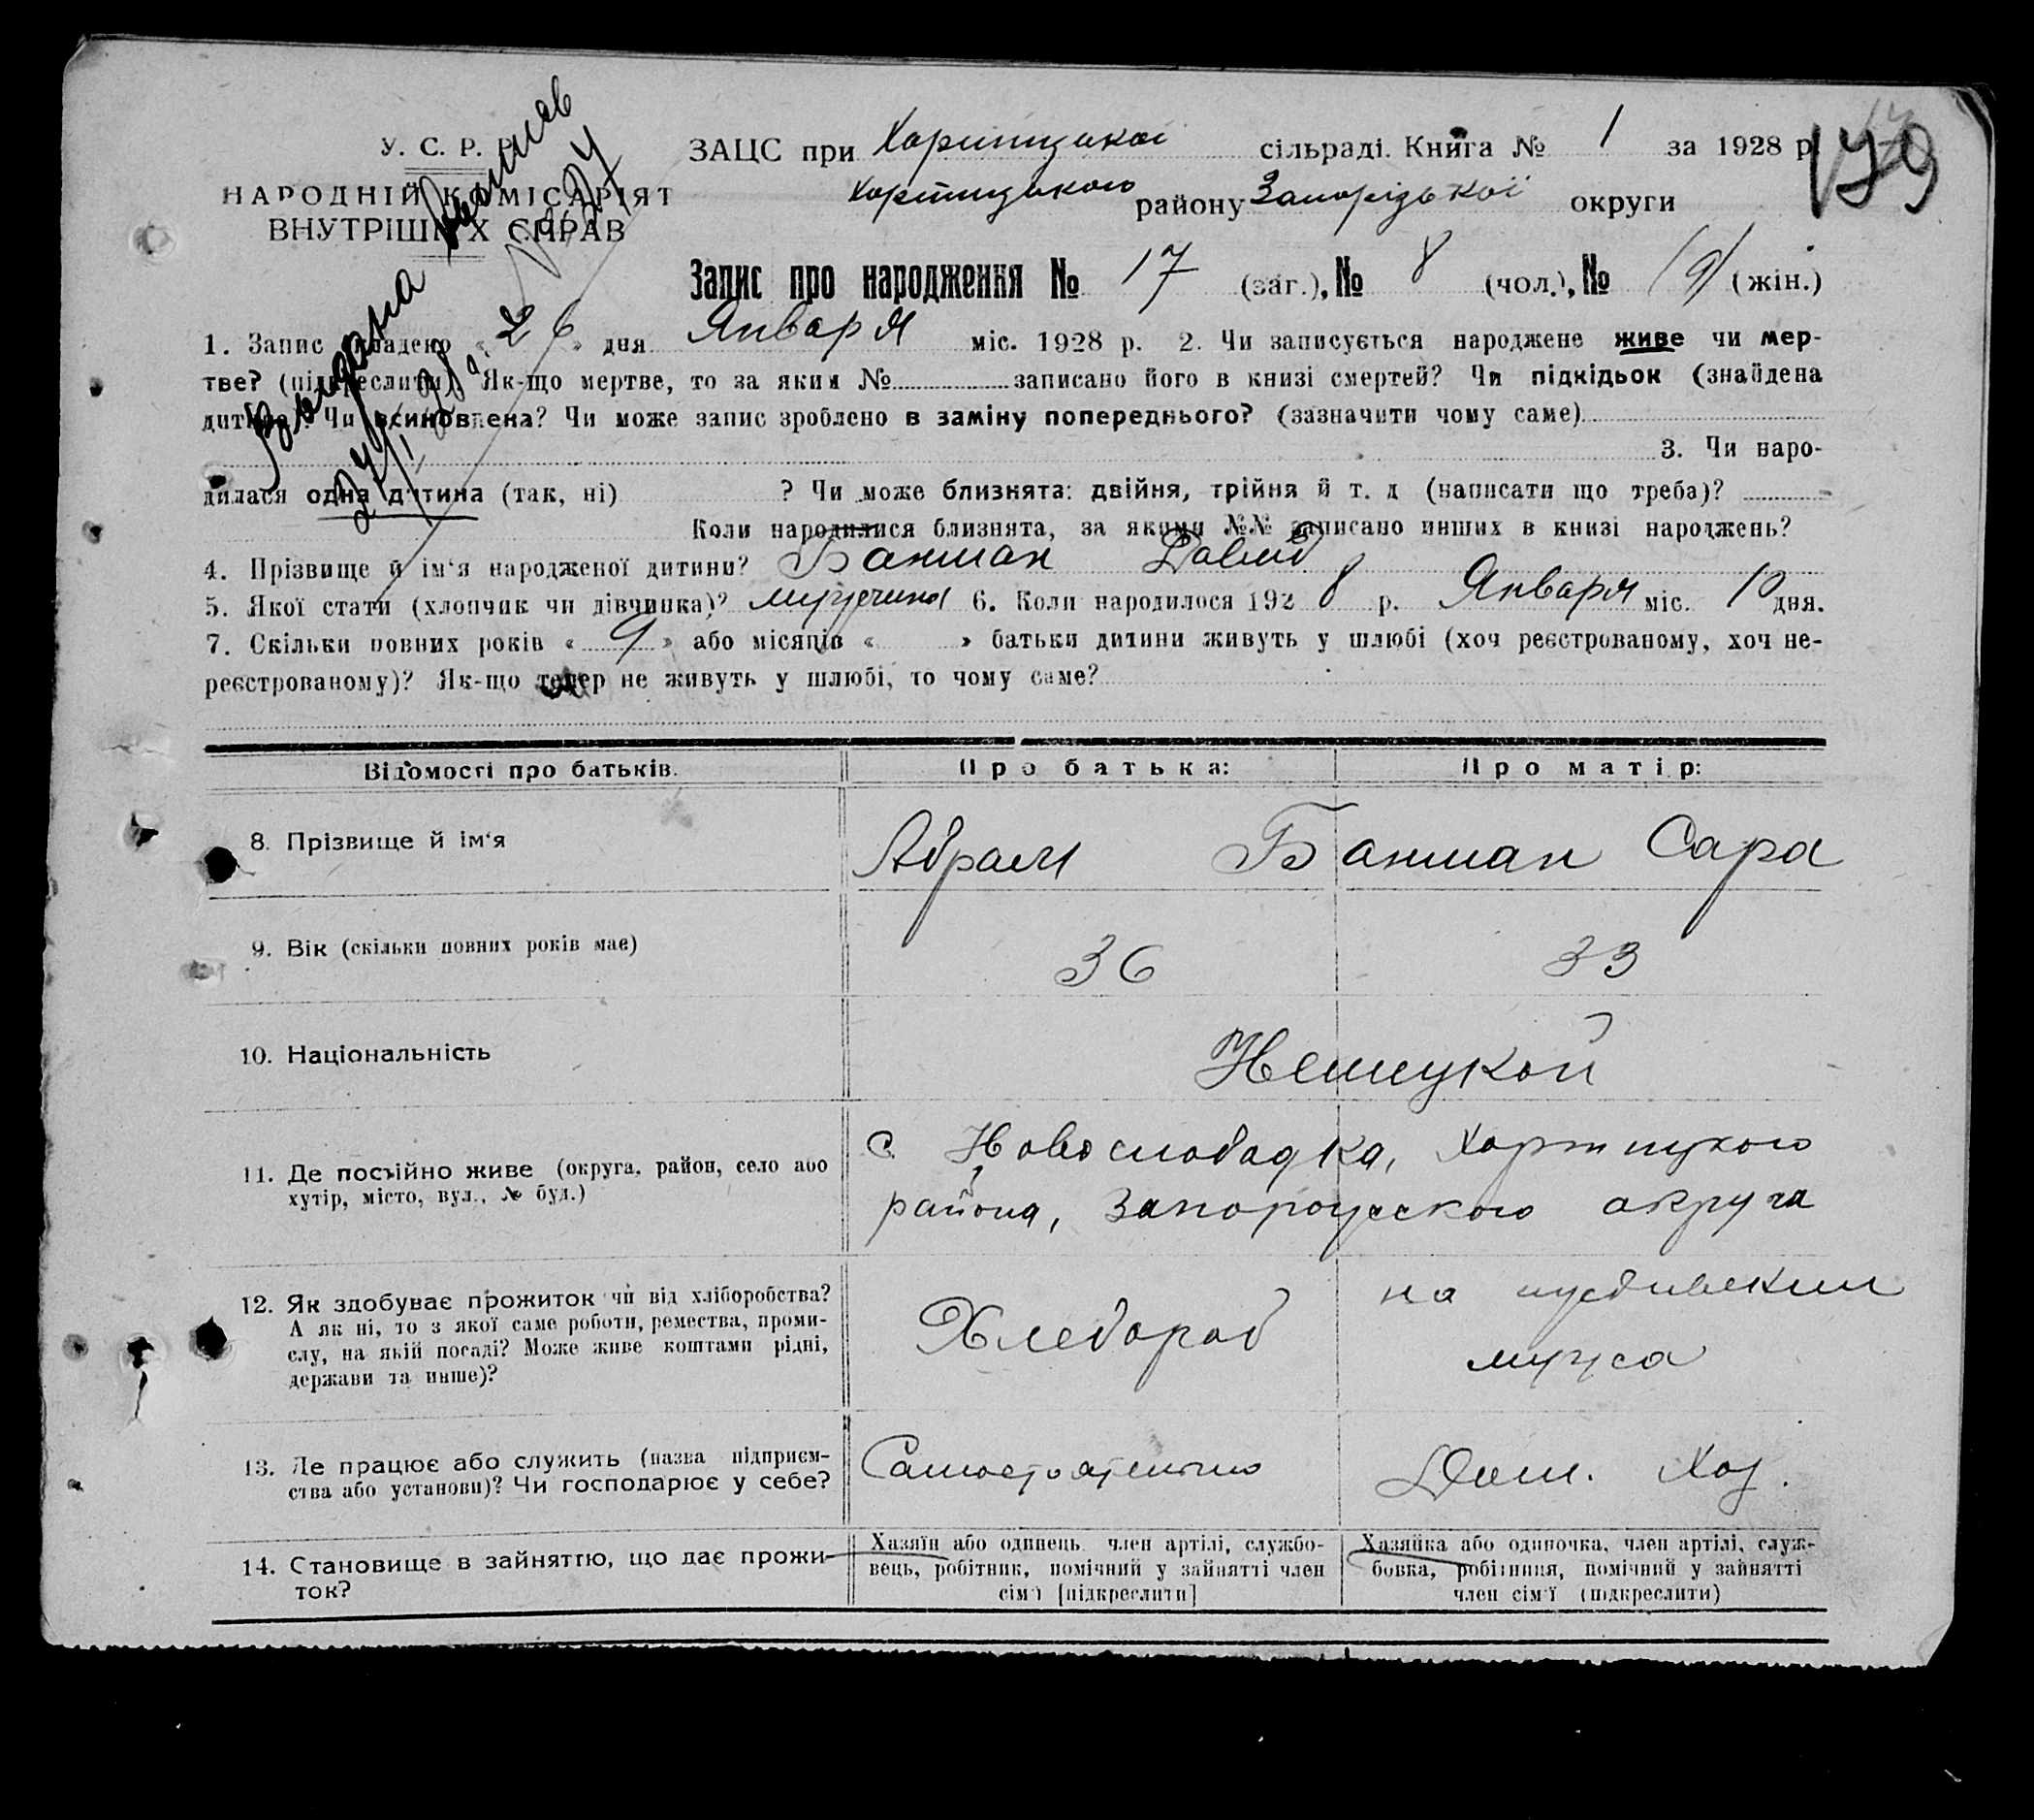 У. С. Р. Р.
НАРОДНІЙ КОМІСАРІЯТ
ВНУТРІШНІХ СПРАВ
Выдана
179
ЗАЦС при Хортицької сільраді. Книга № 1 за 1928 р.
Хортицького району Запорізької округи
Запис про народження № 17 (заг.), № 8 (чол.), № (9) (жін.)
1. Запис складено « 26 » дня Января міс. 1928 р. 2. Чи записується народжене живе чи мер-
тве? (підкреслити). Як-що мертве, то за яким № записано його в книзі смертей? Чи підкідьок (знайдена
дитина)? Чи всиновлена? Чи може запис зроблено в заміну попереднього? (зазначити чому саме)
3. Чи наро-
дилася одна дитина (так, ні) ? Чи може близнята: двійня, трійня й т. д (написати що треба)?
Коли народилися близнята, за якими №№ записано инших в книзі народжень?
4. Прізвище й ім‘я народженої дитини? Банман Давид
5. Якої стати (хлопчик чи дівчинка)? мужчина 6. Коли народилося 1928 р. Января міс. 10 дня.
7. Скільки повних років « 9 » або місяців « » батьки дитини живуть у шлюбі (хоч реєстрованому, хоч не-
реєстрованому)? Як-що тепер не живуть у шлюбі, то чому саме?
Відомості про батьків. Про батька: Про матір:
8. Прізвище й ім‘я Абрам Банман Сара
9. Вік (скільки повних років має) 36 33
10. Національність Немецкой
11. Де постійно живе (округа, район, село або
хутір, місто, вул., № буд.)
с. Новослободка, Хортицкого
района, Запорожского округа
12. Як здобуває прожиток чи від хліборобства?
А як ні, то з якої саме роботи, ремества, проми-
слу, на якій посаді? Може живе коштами рідні,
держави та инше)?
Хлебороб
на иждивении
мужа
13. Де працює або служить (назва підприєм-
ства або установи)? Чи господарює у себе?
Самостоятельно
Дом. Хоз.
14. Становище в зайняттю, що дає прожи-
ток?
Хазяїн або одинець член артілі, службо-
вець, робітник, помічний у зайнятті член
сім‘ї [підкреслити]
Хазяйка або одиночка, член артілі, служ-
бовка, робітниця, помічний у зайнятті
член сім‘ї (підкреслити)